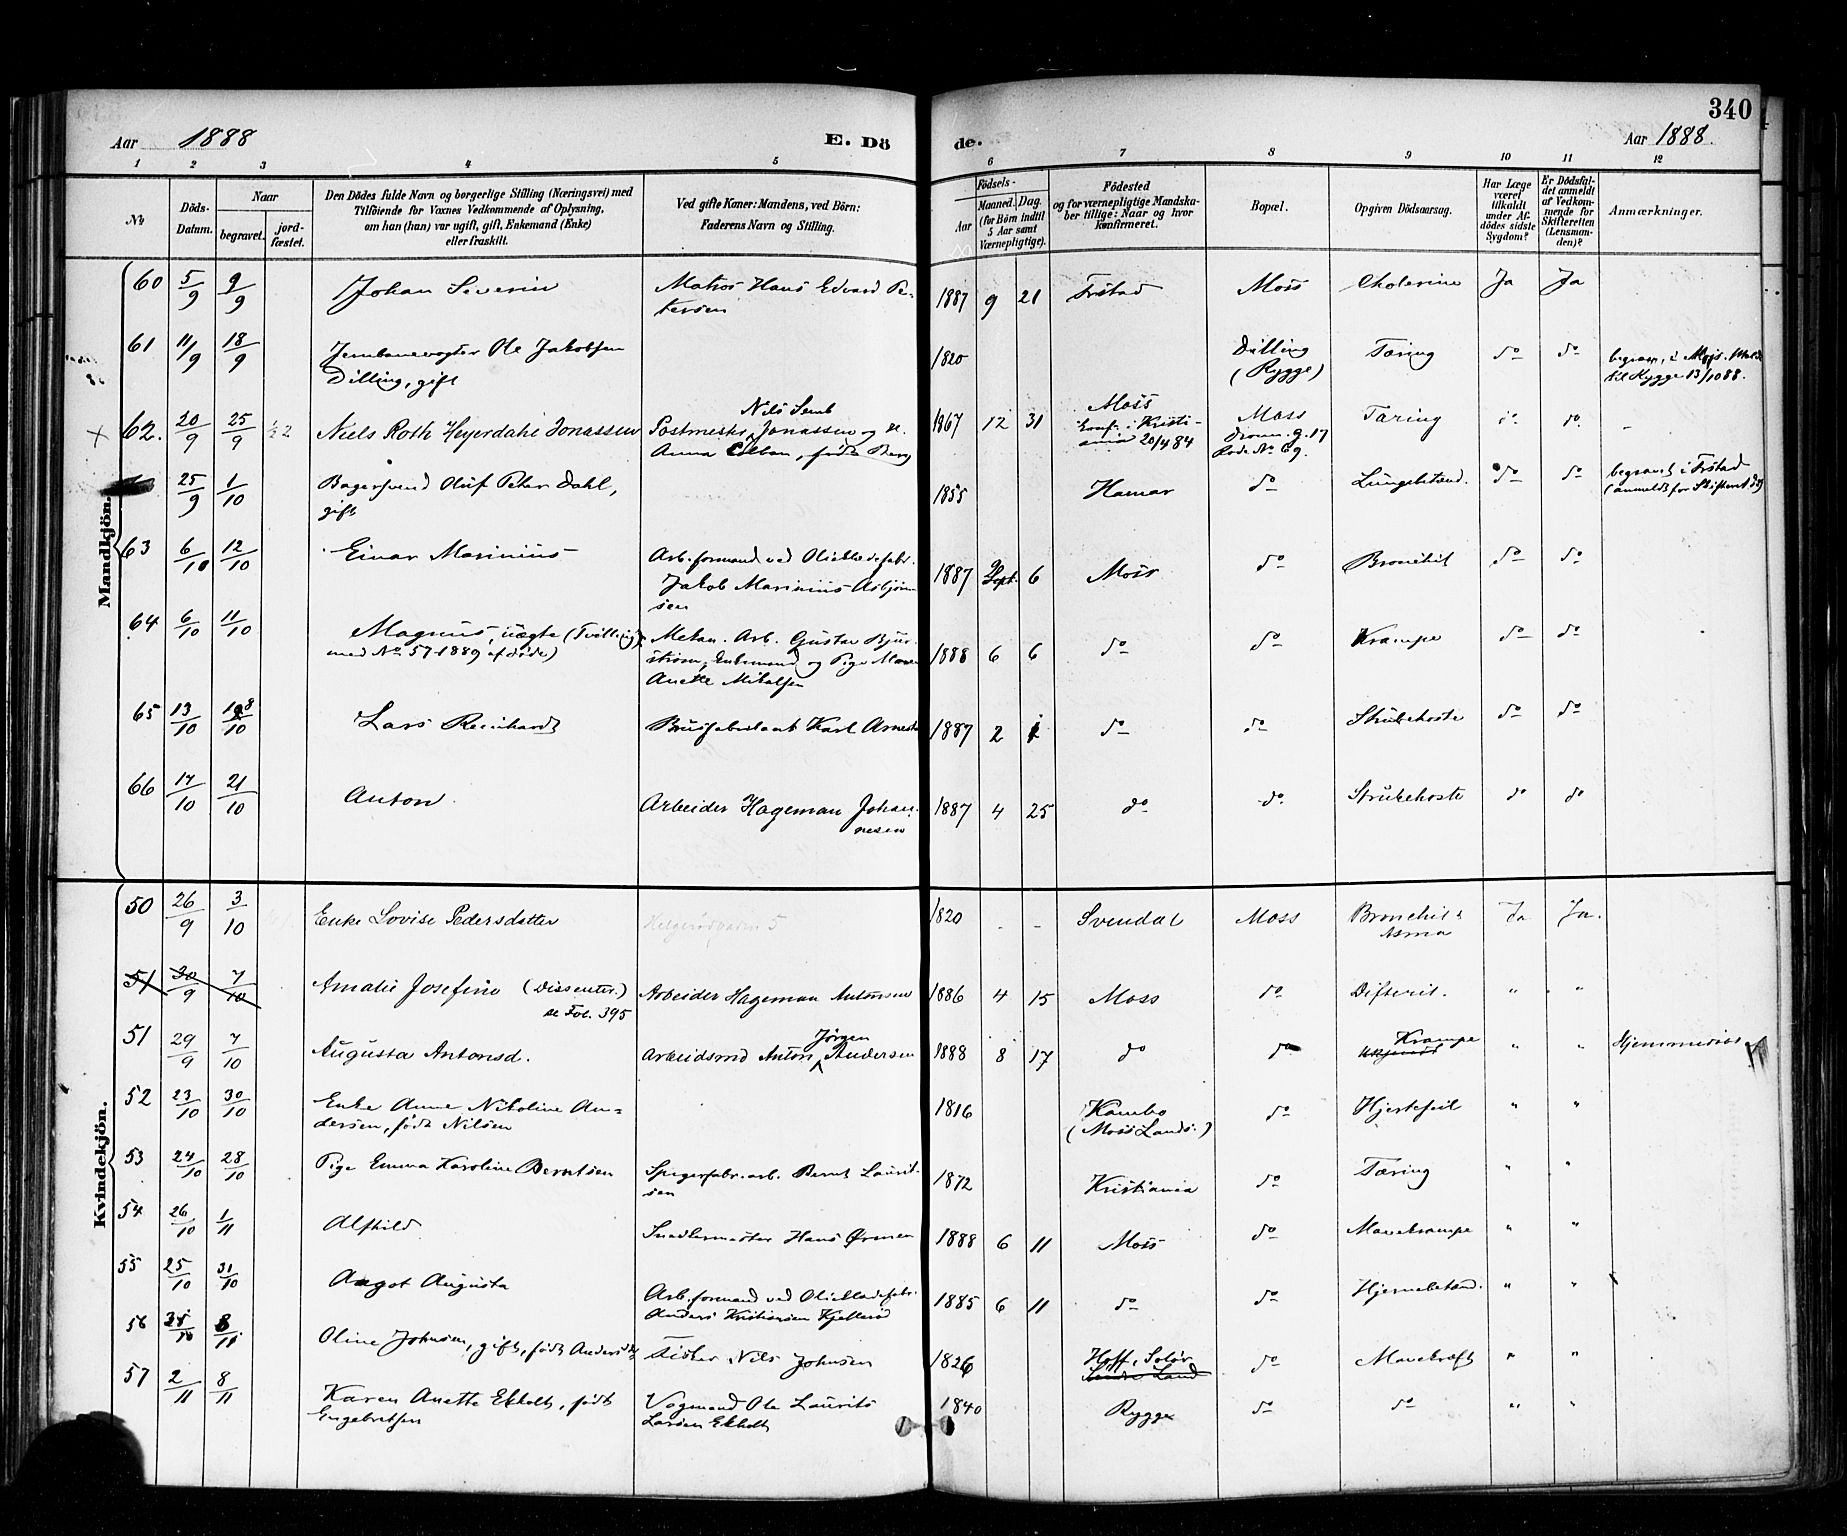 340
Aar 1888 E. Dö de. Aar 1888.
1 2 3 4 5 6 7 8 9 10 11 12
No
Döds-Datum.
Naar
begravet. jord-fæstet.
Den Dödes fulde Navn og borgerlige Stilling (Næringsvei) med
Tilföiende for Voxnes Vedkommende af Oplysning,
om han (hun) var ugift, gift, Enkemand (Enke)
eller fraskilt.
Ved gifte Koner: Mandens, ved Börn:
Faderens Navn og Stilling.
Födsels-
Aar Maaned. Dag.
(for Börn indtil
5 Aar samt
Værnepligtige).
Födested
og for værnepligtige Mandska-
ber tillige: Naar og hvor
konfirmeret.
Bopæl.
Opgiven Dödsaarsag.
Har Læge
været
tilkaldt
under Af-
dödes sidste
Sygdom?
Er Dödsfal-
det anmeldt
af Vedkom-
mende for
Skifteretten
(Lensman-
den)?
Anmærkninger.
Mandkjön.
60 5/9 9/9 Johan Severin Matros Hans Edvard Pe-
tersen 1887 9 21 Frstad Moss Cholerine Ja Ja
61 11/9 18/9 Jernbanevogter Ole Jakobsen
Dilling, gift 1820 Dilling
(Rygge) Tæring do do begrav. i Moss. Meldt
til Rygge 13/10 88.
62. 20/9 25/9 Niels Roth Heyerdahl Jonassen Postmester Nils Semb Jonassen og H.
Anna Elben, født Berg 1867 12 31 Moss
konf. i Kristi-
ania 20/4 84 Moss
Dronn. g. 17
Rode No 69. Tæring do do -
25/9 1/10 Bagersvend Oluf Peter Dahl,
gift 1855 Hamar do Lungebetænd. do do begravet i Frstad
(anmeldt for Skifteret do)
63 6/10 12/10 Einar Marinius Arb.formand ved Oliekledefabr.
Jakob Marinius Asbjørn-
sen 1887 Sept. 6 Moss do Bronchit do do
64 6/10 11/10 Magnus, uægte (Tvilling
med No 57-1889 af døde) Mekan. Arb. Gustav Bjur-
strøm, Enkemand og Pige Maren
Anette Mikalsen 1888 6 6 do do Krampe do do
65 13/10 18/10 Lars Reinhardt Brusfabrikant Karl Arnesen 1887 2 1 do do Strubehoste do do
66 17/10 21/10 Anton Arbeider Hageman Johan-
nesen 1887 4 25 do do Strubehoste do do
Kvindekjön.
50 26/9 3/10 Enke Lovise Pedersdatter 5 1820 - - Svendal Moss Bronchit &
Asma Ja Ja.
51 30/9 7/10 Amalie Josefine (Dissenter.)
se Fol. 395 Arbeider Hageman Antonsen 1886 4 15 Moss do Difterit. " "
51 29/9 7/10 Augusta Antonsd. Arbeidsmd Anton Jørgen Andersen 1888 8 17 do do Krampe
ukjendt " " Hjemmedøbt
52 23/10 30/10 Enke Anne Nikoline An-
dersen, født Nilsen 1816 Kambo
(Moss Lands.) do Hjertefeil " "
53 24/10 28/10 Pige Emma Karoline Berntsen Spigerfabr.arb. Bernt Laurit-
sen 1872 Kristiania do Tæring " "
54 26/10 1/11 Alfhild Snedkermester Hans Ørmen 1888 6 11 Moss do Mavekrampe " "
55 25/10 31/10 Aagot Augusta Arb.formand ved Oliekledefabr.
Anders Kristiansen Kjellerød 1885 6 11 do do Hjernebetænd. " "
56 8/11 Oline Johnsen, gift, født Andersd. Fisker Nils Johnsen 1826 Hoff, Solør
Søndre Land do Mavekræft " "
57 2/11 8/11 Karen Anette Ekholt, født
Engebretsen Vogmand Ole Laurits
Larsen Ekholt 1840 Rygge do do " "